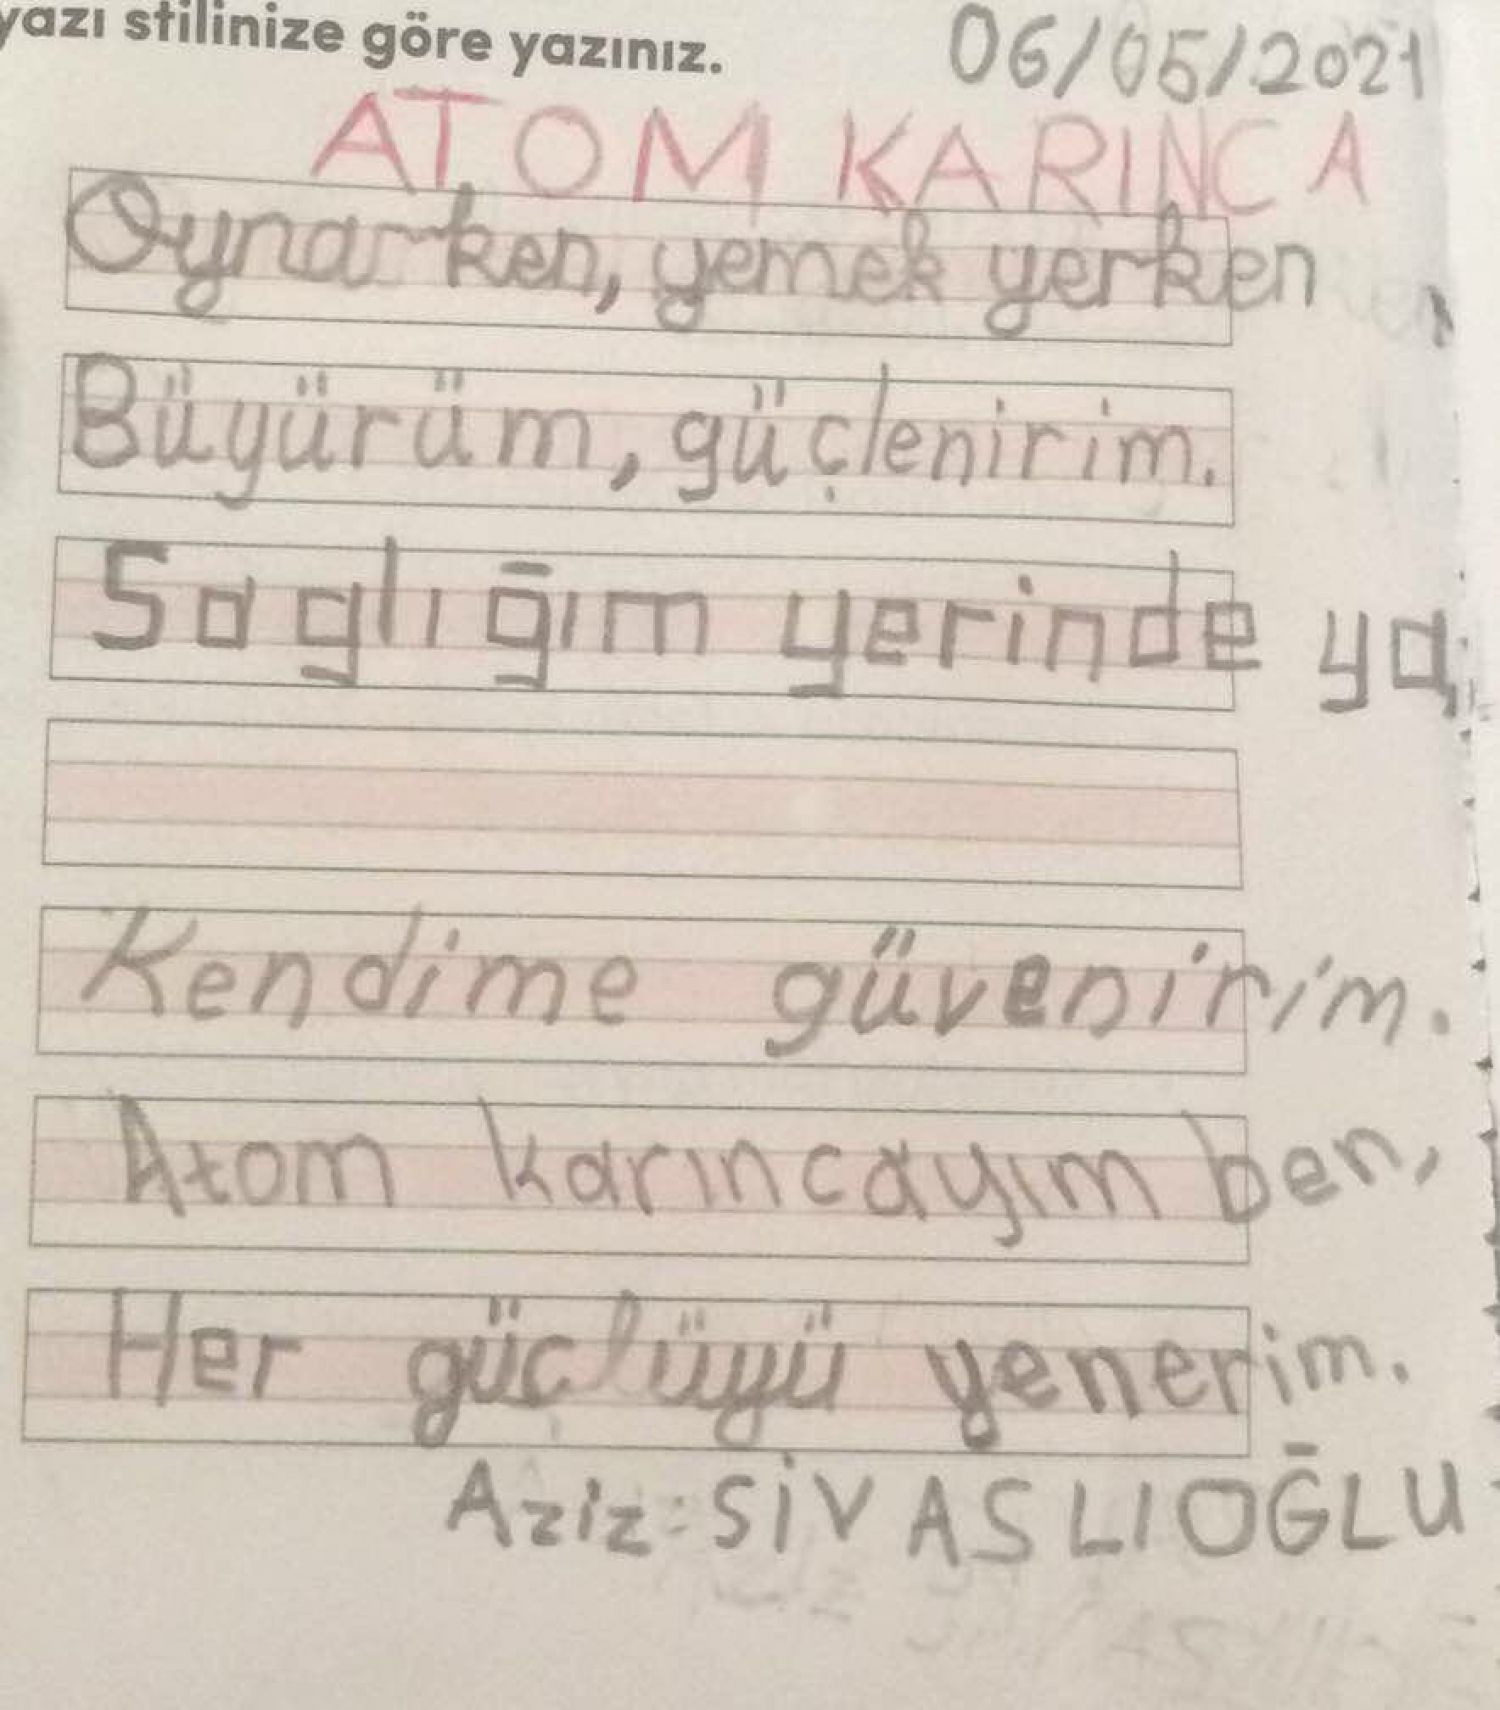 yazı stilinize göre yazınız.
06/05/2021
ATOM KARINCA
Oynarken, yemek yerken
Büyürüm, güçlenirim.
Saglığım yerinde ya,
Kendime güvenirim.
Atom karıncayım ben,
Her güçlüyü yenerim.
Aziz: SİVASLIOĞLU